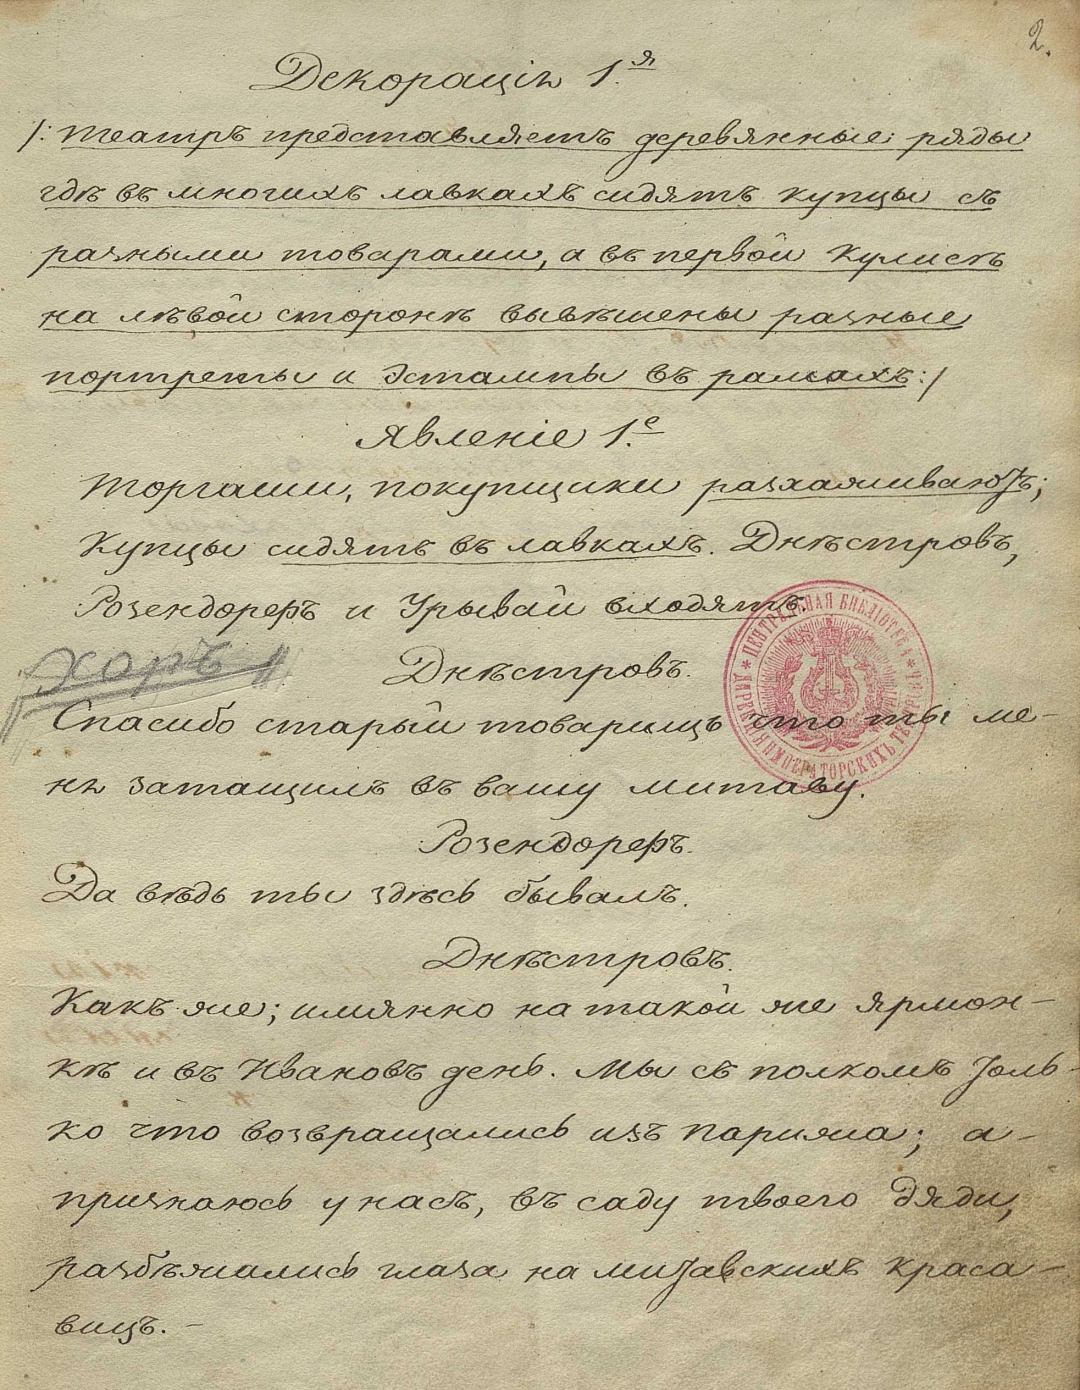 2.
Декорацiя 1.я
/: театръ представляетъ деревянные ряды
гдѣ въ многихъ лавкахъ сидятъ купцы съ
разными товарами, а въ первой кулисѣ
на лѣвой сторонѣ вывѣшены разные
портреты и эстампы въ рамкахъ :/
Явленiе 1.е
Торгаши, покупщики расхаживаютъ;
Купцы сидятъ въ лавкахъ. Днѣстровъ,
Розендорфъ и Урывай входятъ.
хоръ
Днѣстровъ.
Спасибо старый товарищъ что ты ме-
ня затащилъ въ вашу митаву.
Розендорфъ.
Да вѣдь ты здѣсь бывалъ.
Днѣстровъ.
Какъ же; имянно на такой же ярмон-
кѣ и въ Ивановъ день. Мы съ полкомъ толь-
ко что возвращались изъ Парижа; а-
признаюсь у насъ, въ саду твоего дяди,
разбѣжались глаза на митавскихъ краса-
вицъ.-
* ЦЕНТРАЛЬНАЯ БИБЛIОТЕКА *
ДИРЕКЦIЯ ИМПЕРАТОРСКИХЪ ТЕАТРОВЪ